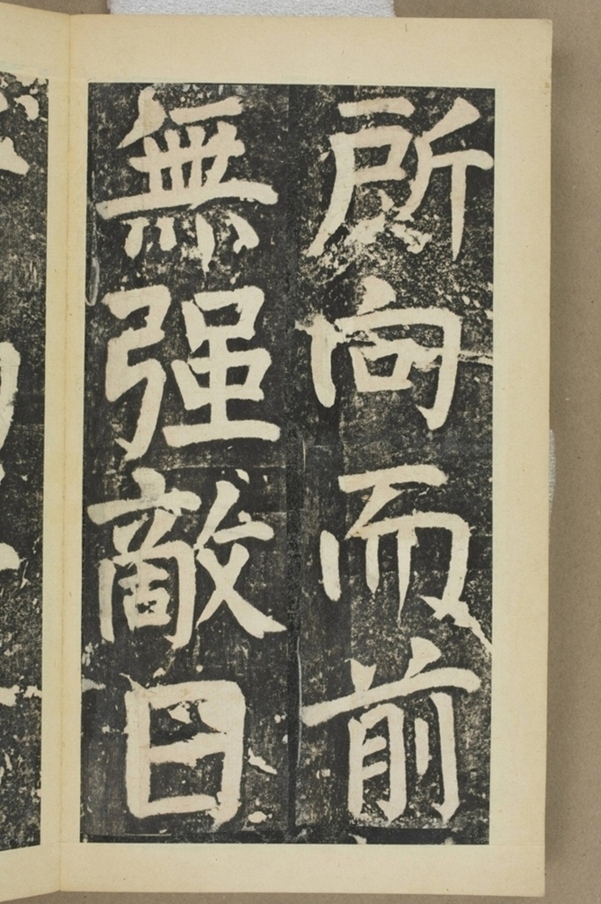 所向而前
無强敵日